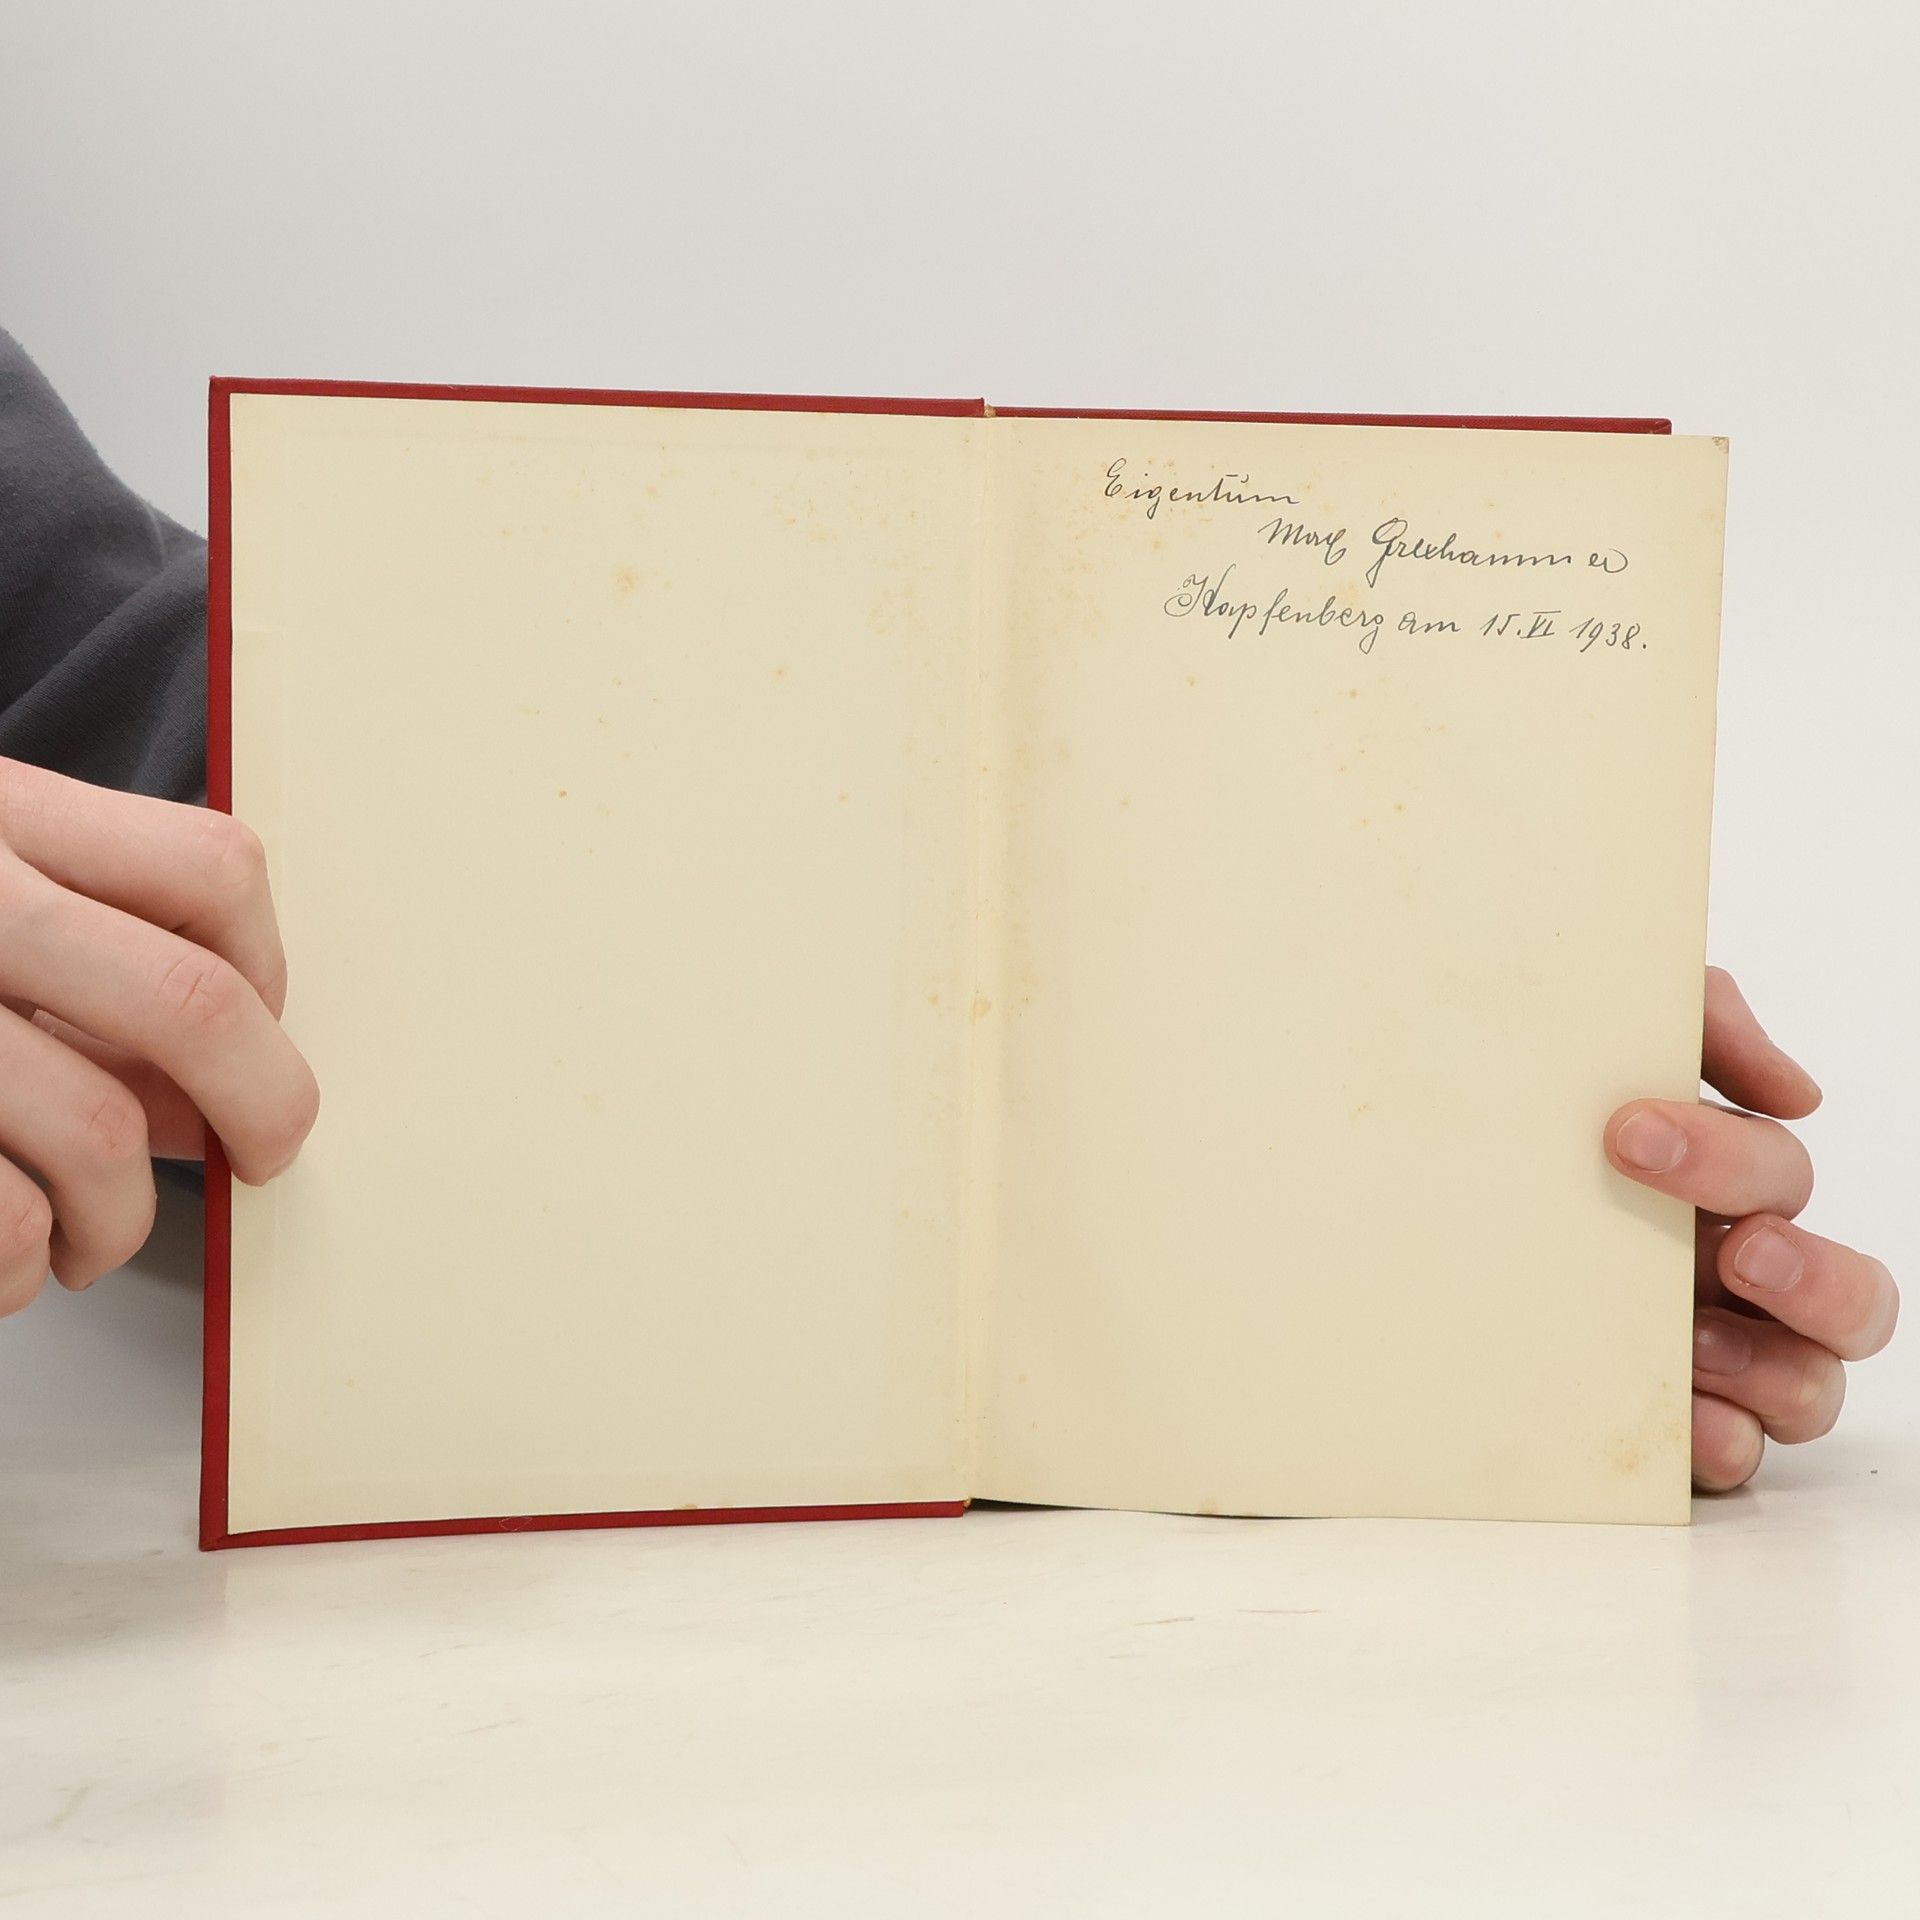 Eigentum
Max Grexhammer
Kapfenberg am 15. VI 1938.